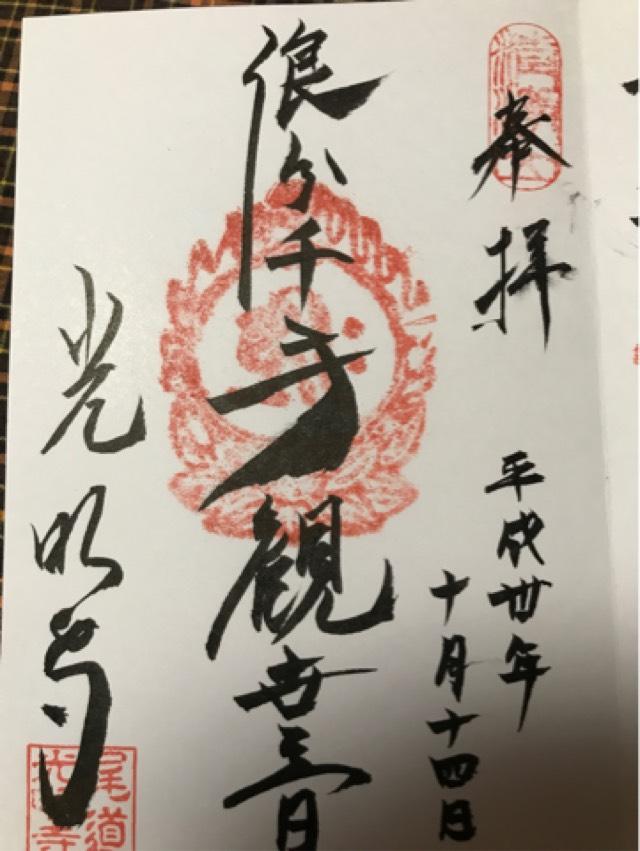 奉拝
平成卅年
十月十四日
浪分千手観世音
光明寺
尾道
光明寺